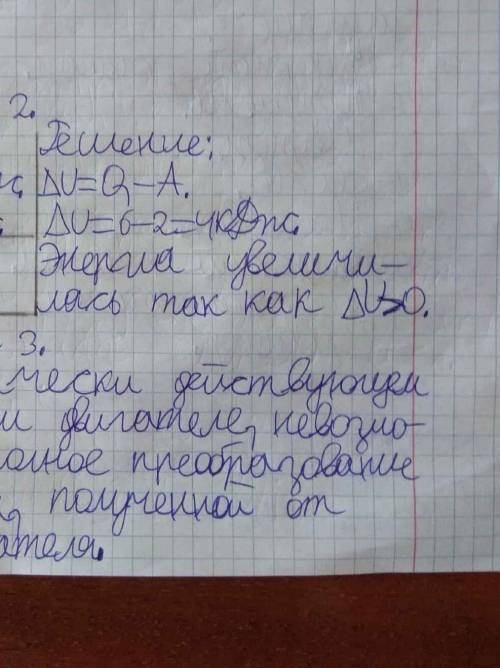 2.
Решение:
ΔU=Q-A.
ΔU=6-2=4кДж.
Энергиа увеличи-
лась так как ΔU>0.
3.
чески действующем
двигателе, невозмо-
преобразование
полученной от